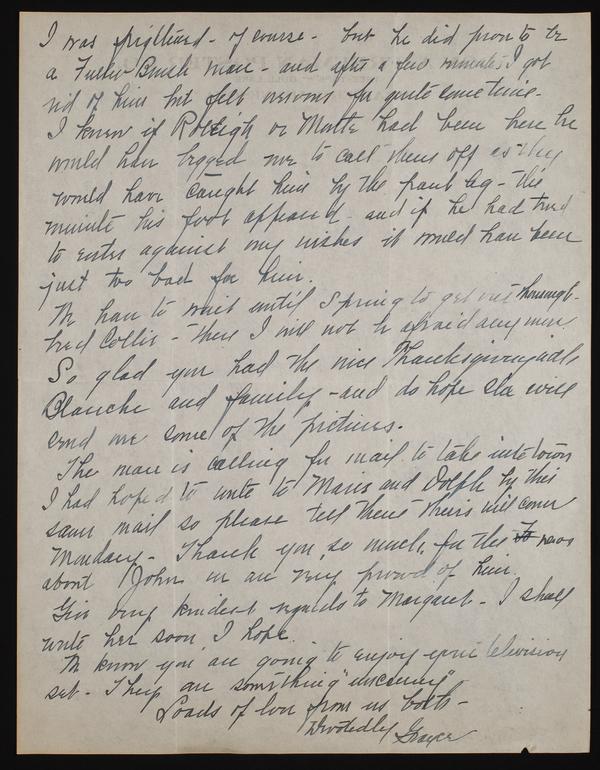 I was frightened - of course - but he did prove to be
a Fuller Brush man - and after a few minutes I got
rid of him but felt nervous for quite sometime.
I know if Raleigh or Monte had been here he
would have begged me to call them off as they
would have caught him by the pant leg - the
minute his foot appeared - and if he had tried
to enter against my wishes it would have been
just too bad for him.
We have to wait until Spring to get our thorough-
bred Collie - then I will not be afraid any more.
So glad you had the nice Thanksgiving with
Blanche and family - and do hope she will
send me some of the pictures.
The man is calling for mail to take into town
I had hoped to write to Marie and Dolph by this
same mail so please tell them theirs will come
Monday - Thank you so much for the news
about John we are very proud of him.
Give my kindest regards to Margaret - I shall
write her soon I hope
We know you are going to enjoy your television
set - They are something "uncanny".
Loads of love from us both -
Devotedly Grace